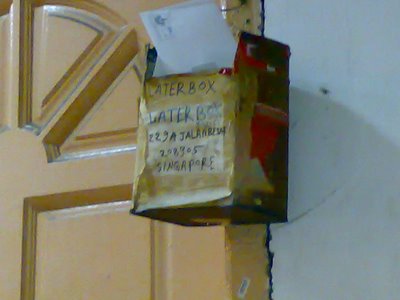 LATERBOX
LATERBOX
229A JALANBESAR
208905
SINGAPORE